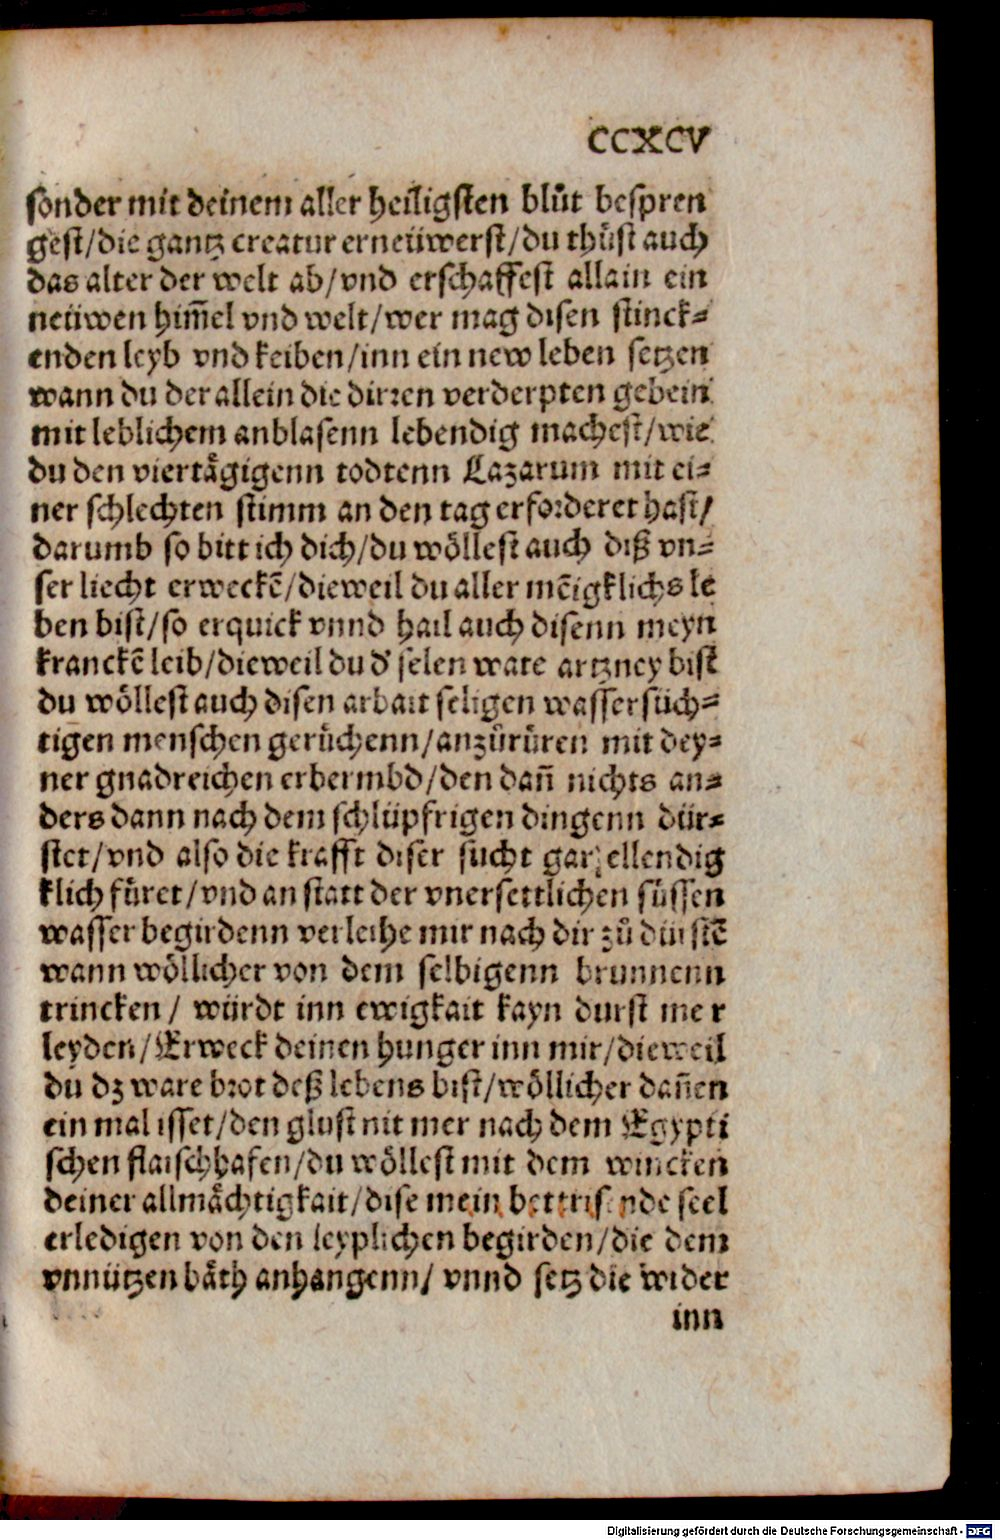 CCXCV
sonder mit deinem aller heiligsten blůt bespren
gest/die gantz creatur erneüwerst/du thůst auch
das alter der welt ab/vnd erschaffest allain ein
neüwen him̃el vnd welt/wer mag disen stinck-
enden leyb vnd keiben/inn ein new leben setzen
wann du der allein die dirren verderpten gebein
mit leblichem anblasenn lebendig machest/wie
du den viertågigenn todtenn Lazarum mit ei-
ner schlechten stimm an den tag erforderet hast/
darumb so bitt ich dich/du wöllest auch diß vn-
ser liecht erweckẽ/dieweil du aller mẽigklichs le
ben bist/so erquick vnnd hail auch disenn meyn
kranckẽ leib/dieweil du d' selen ware artzney bist
du wöllest auch disen arbait seligen wassersüch-
tigen menschen gerůchenn/anzůrůren mit dey-
ner gnadreichen erbermbd/den dañ nichts an-
ders dann nach dem schlüpfrigen dingenn dür-
stet/vnd also die krafft diser sucht gar ellendig
klich fůret/vnd an statt der vnersettlichen sůssen
wasser begirdenn verleihe mir nach dir zů dürstẽ
wann wöllicher von dem selbigenn brunnenn
trincken / würdt inn ewigkait kayn durst mer
leyden/Erweck deinen hunger inn mir/dieweil
du dz ware brot deß lebens bist/wöllicher dañen
ein mal isset/den glust nit mer nach dem Egypti
schen flaischhafen/du wöllest mit dem wincken
deiner allmåchtigkait/dise mein bettrisende seel
erledigen von den leyplichen begirden/die dem
vnnützen båth anhangenn/ vnnd setz die wider
inn
Digitalisierung gefördert durch die Deutsche Forschungsgemeinschaft - DFG